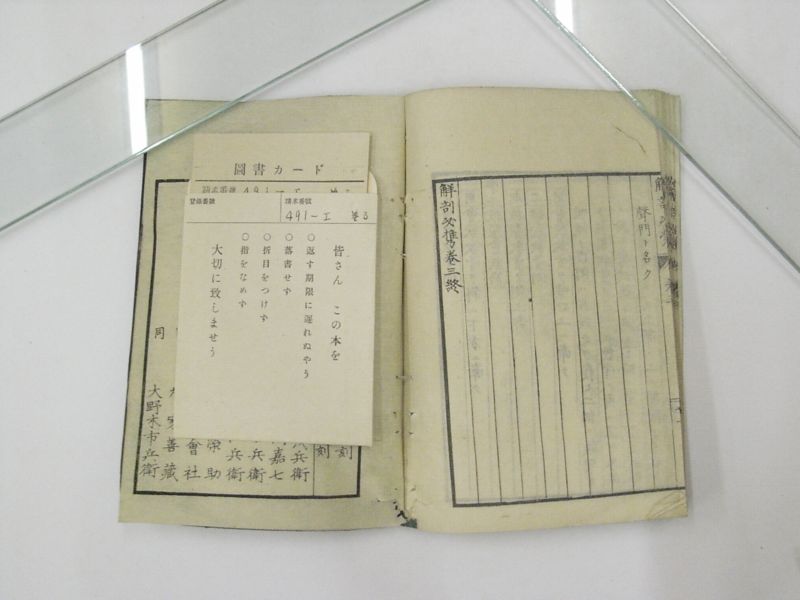 聲門ト名ク
解剖攷㩁卷三終
圖書カード
請求番號 491-I
登錄番號
請求番號
491-I 巻3
皆さん この本を
○返す期限に遲れぬやう
○落書せず
○折目をつけず
○指をなめず
大切に致しませう
刻
刻
兵衛
嘉七
兵衛
兵衛
助
會社
善藏
同
大野木市兵衛